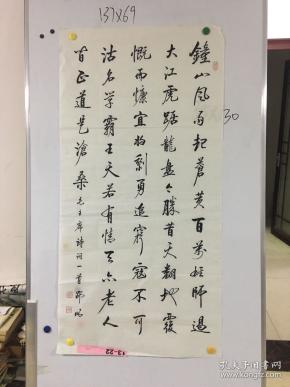 137x69
30
鐘山風雨起蒼黄百萬雄師過
大江虎踞龍盤今勝昔天翻地覆
慨而慷宜將剩勇追窮寇不可
沽名學霸王天若有情天亦老人
间正道是滄桑毛主席詩词一首
13-22
孔夫子旧书网